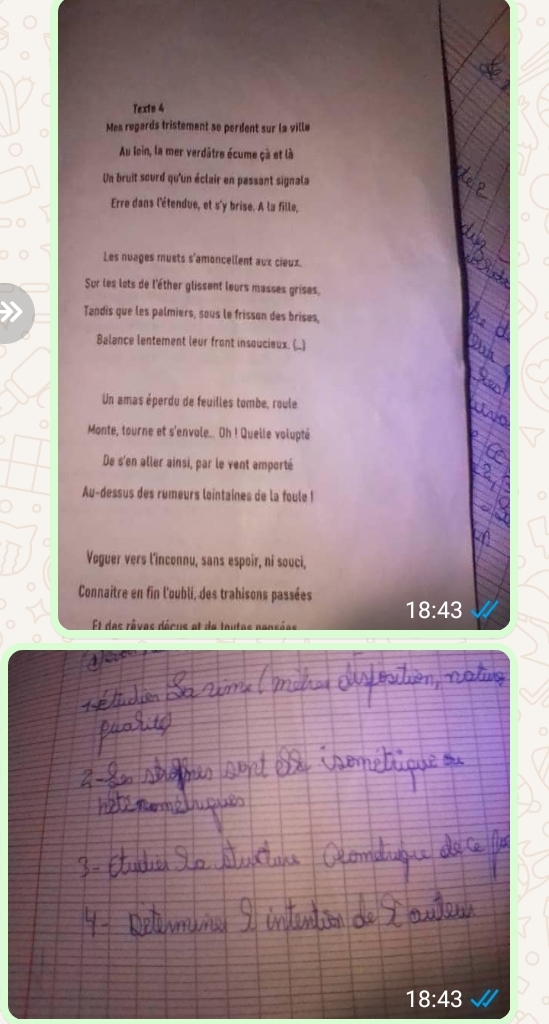 Texte 4
Mes regards tristement se perdent sur la ville
Au loin, la mer verdâtre écume çà et là
Un bruit sourd qu'un éclair en passant signala
Erre dans l'étendue, et s'y brise. A la file,
Les nuages muets s'amoncellent aux cieux.
Sur les lots de l'éther glissent leurs masses grises,
Tandis que les palmiers, sous le frisson des brises,
Balance lentement leur front insoucieux. (...)
Un amas éperdu de feuilles tombe, roule
Monte, tourne et s'envole... Oh ! Quelle volupté
De s'en aller ainsi, par le vent emporté
Au-dessus des rumeurs lointaines de la foule !
Voguer vers l'inconnu, sans espoir, ni souci,
Connaitre en fin l'oubli, des trahisons passées
Et des rêves déçus et de toutes pensées
18:43
1- étudier la rime ( disposition, nature
2- Les strophes sont elle isométrique ou
hétérométriques
3- Etudier la structure de ce
4- Déterminer l'intention de l'auteur
18:43